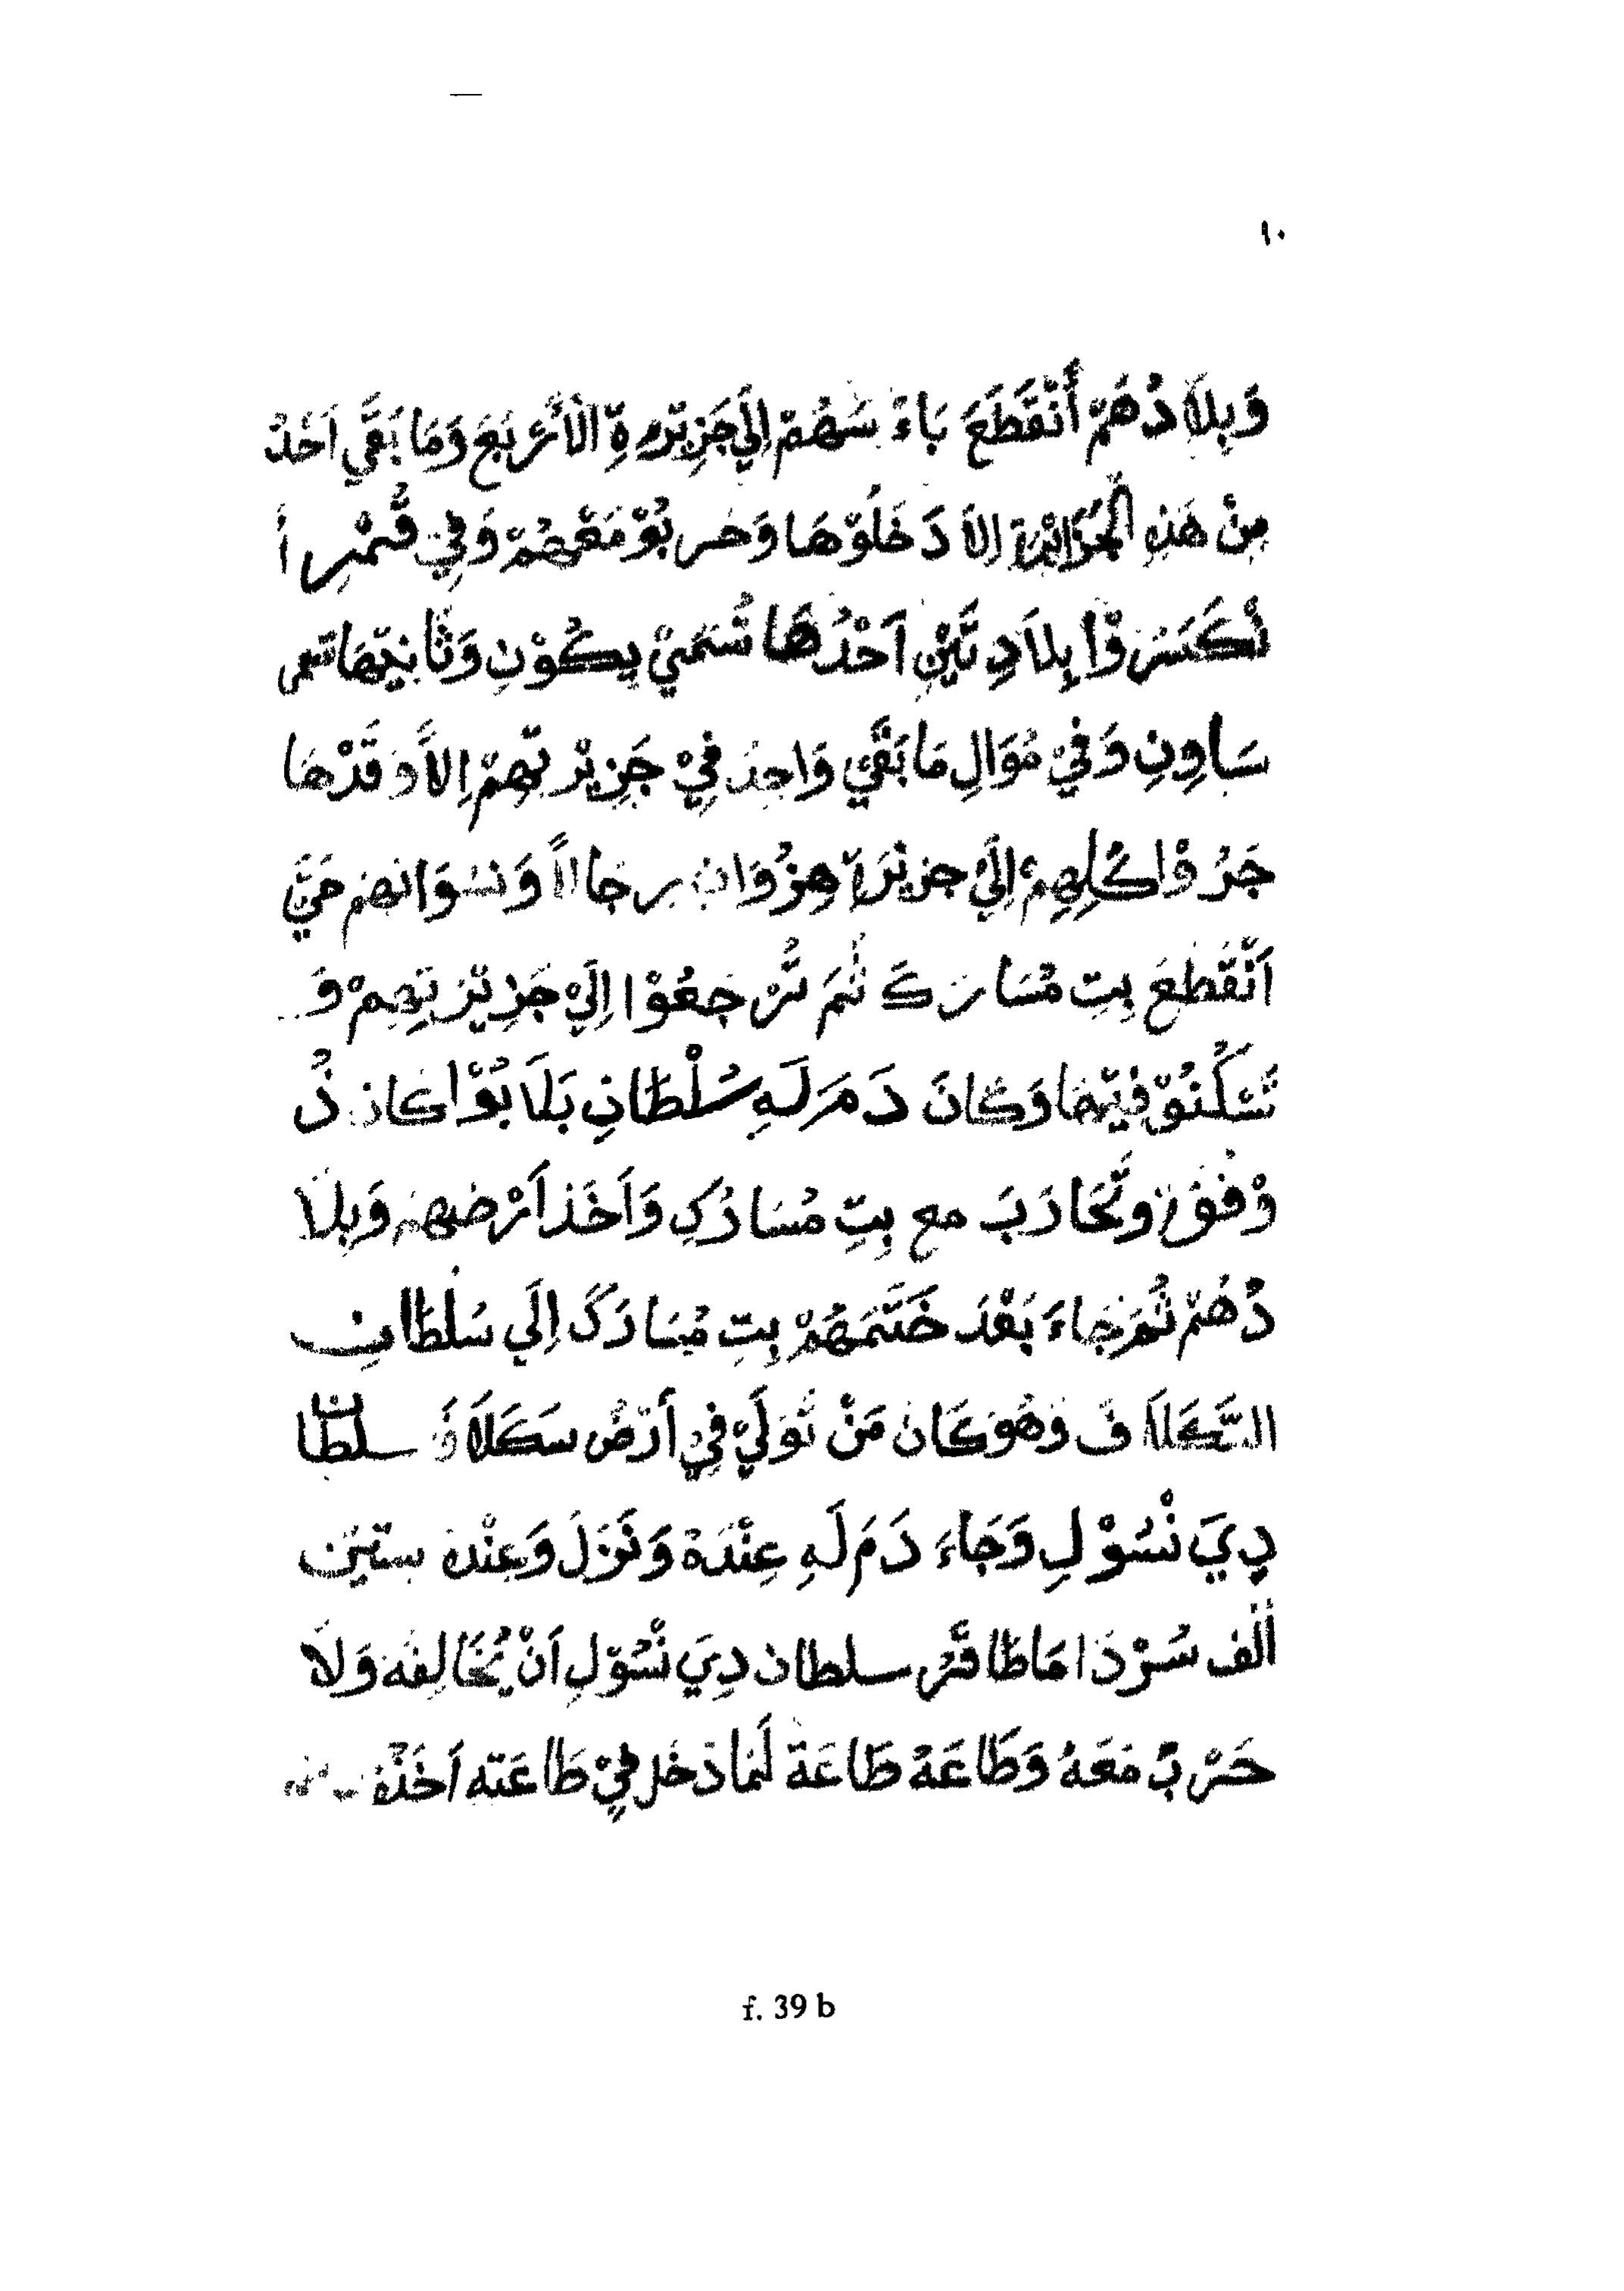 ١٠
وَبِلَادُهُمْ أَنْقَطَعَ بَاءَ سَهُمْ اِلَيَ جَزِيْرَةِ الْأَرْبَعَ وَمَا بَقَّي اَحَدُ
مِنْ هَذِهِ الْجَزَائِرَة اِلاَ دَخَلُوْهَا وَحَربُوْ مَعَهُمْ وَفِي قُمْرِ أ
نْكَسَرُوْا بِلَادِتَّيْنِ اَحْدُهَا تُسَمَيْ بِكُوْنِ وَثَانِيْهَا تسمى
سَاوِنِ وَفيْ مُوَالِ مَا بَقَّيْ وَاحِدُ فِيْ جَزِيْرَتِهِمْ اِلاَّ وَقَدْهَا
جَرُوْا كُلِهِمْ اِلَيَ جزيْرَة هِنْزُوَان رجَالاً وَنسْوَانهمْ حَتَّيَ
اَنْقَطَعَ بِتِ مُسَارَكَ ثُمَ تَّرْجَعُوْا اِلَيْ جَزِيْرَتِهِمْ وَ
تَسْكُنُوْ فِيْهَا وَكَانَ دَمَرَلَهِ سُلْطَانِ بَلَابُوْا كَانَ ذُ
وْفَقَن وتَّحَارَبَ مع بِتِ مُسَارُكِ وَاَخَذ اَرْضهمْ وَبِلَا
دُهُمْ ثُمَ جَاءَ بَعْدَ خَتَّمَهُمْ بِتِ مُسَارَكَ اِلَي سَلْطَانِ
السَّكَلَافَ وَهُوَ كَانَ مَنْ تُوَلَيْ فِيْ أَرْضُ سَكَلَافَ سلطان
دِيَ نْسُوْلِ وَجَاءَ دَمَرلَهِ عِنْدَهُ وَنَزَلَ وَعِنْده ستّيْن
اَلْف سُرْدَا مَا طَاقَّر سلطان دِيَ نْسُوْلِ اَنْ يُخَالِفَه وَلَا
حَرْبَ مَعَهُ وَطَاعَهُ طَاعَةَ لَمَا دَخَل فِيْ طَاعَته اَخَذَه
f. 39 b